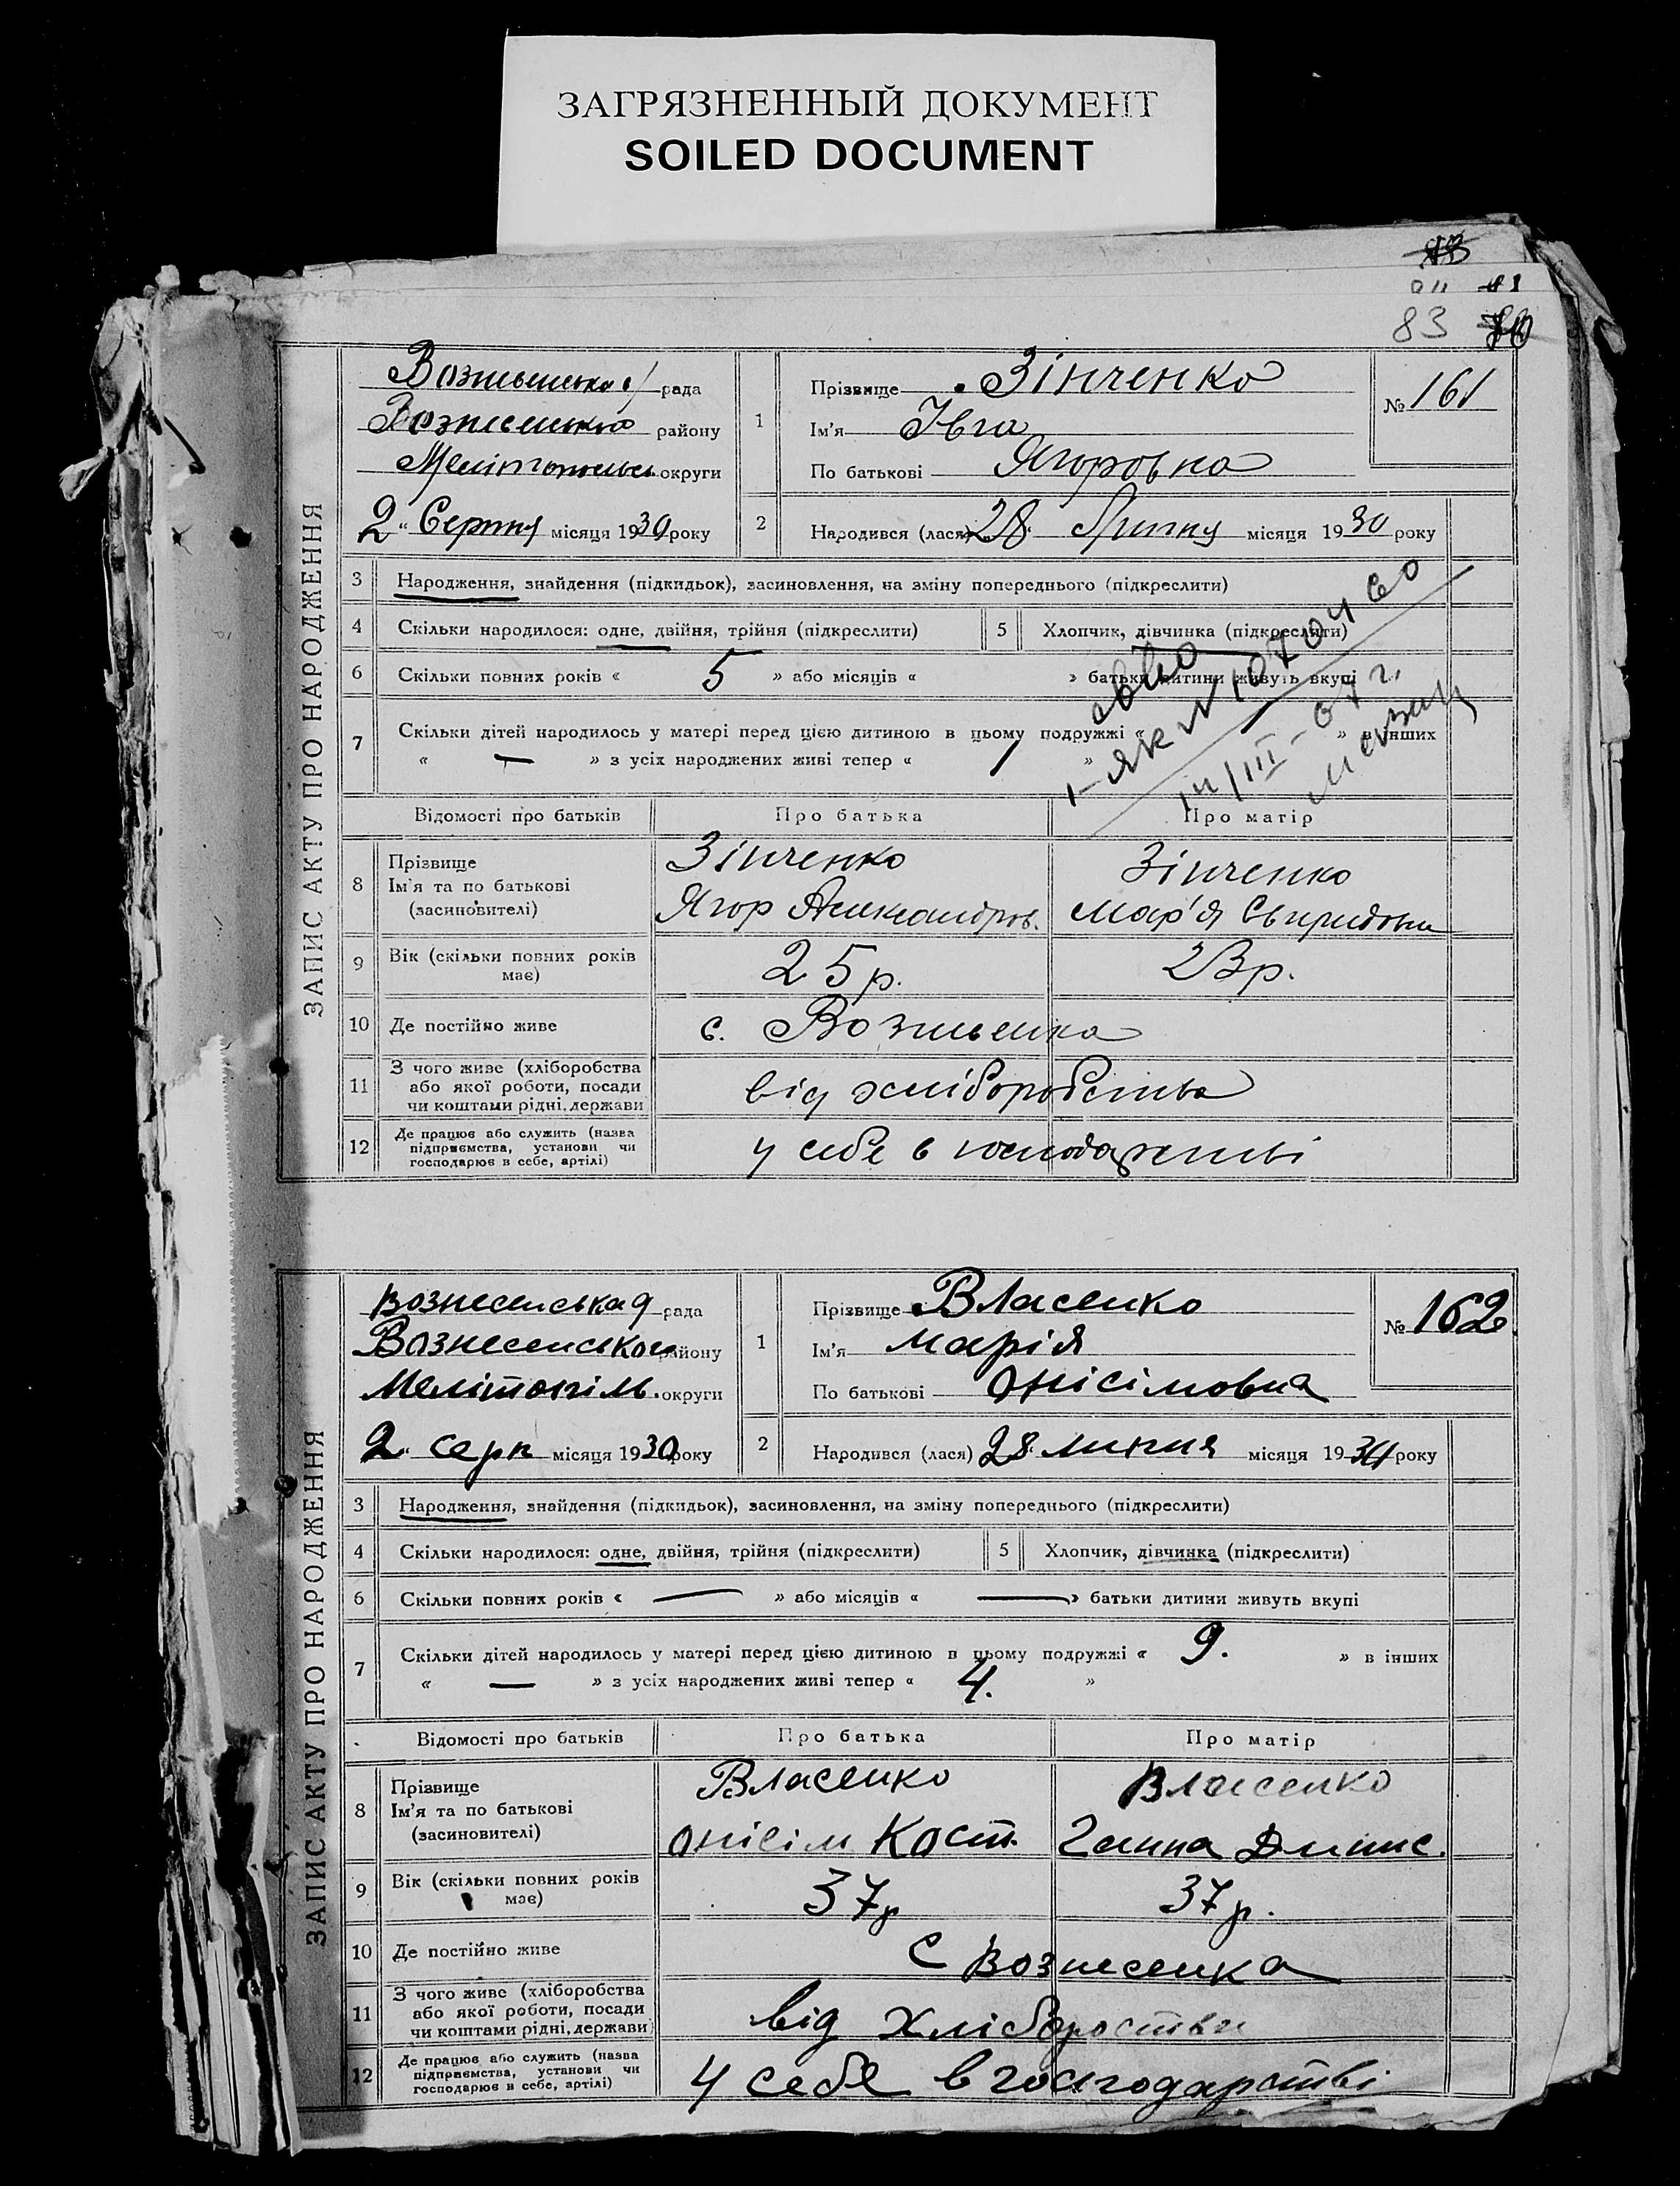 ЗАГРЯЗНЕННЫЙ ДОКУМЕНТ
SOILED DOCUMENT
83
ЗАПИС АКТУ ПРО НАРОДЖЕННЯ
рада
району
округи
2 " Серпня місяця 1930 року
1
Прізвище Зінченко
Ім'я Ївга
По батькові Ягоровна
№ 161
2 Народився (лася) 28 Липня місяця 1930 року
3 Народження, знайдення (підкидьок), засиновлення, на зміну попереднього (підкреслити)
4 Скільки народилося: одне, двійня, трійня (підкреслити) 5 Хлопчик, дівчинка (підкреслити)
6 Скільки повних років « 5 » або місяців « » батьки дитини живуть вкупі
7 Скільки дітей народилось у матері перед цією дитиною в цьому подружжі « » в інших
« — » з усіх народжених живі тепер « 1 »
Відомості про батьків Про батька Про матір
8 Прізвище
Ім'я та по батькові
(засиновителі)
Зінченко
Ягор Александров.
Зінченко
Мар'я Свиридовна
9 Вік (скільки повних років має) 25 р. 23 р.
10 Де постійно живе с.
11 З чого живе (хліборобства
або якої роботи, посади
чи коштами рідні, держави
від хліборобства
12 Де працює або служить (назва
підприємства, установи чи
господарює в себе, артілі)
у себе в господарстві
ЗАПИС АКТУ ПРО НАРОДЖЕННЯ
Вознесенська рада
Вознесенського району
Мелітопіль. округи
2 " серп місяця 1930 року
1
Прізвище Власенко
Ім'я Марія
По батькові Онісімовна
№ 162
2 Народився (лася) 28 липня місяця 1930 року
3 Народження, знайдення (підкидьок), засиновлення, на зміну попереднього (підкреслити)
4 Скільки народилося: одне, двійня, трійня (підкреслити) 5 Хлопчик, дівчинка (підкреслити)
6 Скільки повних років « — » або місяців « — » батьки дитини живуть вкупі
7 Скільки дітей народилось у матері перед цією дитиною в цьому подружжі « 9. » в інших
« — » з усіх народжених живі тепер « 4. »
Відомості про батьків Про батька Про матір
8 Прізвище
Ім'я та по батькові
(засиновителі)
Власенко
Онісім Кост.
Власенко
Ганна
9 Вік (скільки повних років має) 37 р 37 р.
10 Де постійно живе С Вознесенка
11 З чого живе (хліборобства
або якої роботи, посади
чи коштами рідні, держави
від
12 Де працює або служить (назва
підприємства, установи чи
господарює в себе, артілі)
у себе в господарстві